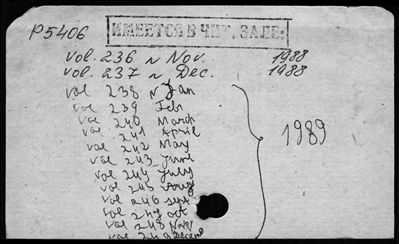 P5406
ИМЕЕТСЯ В ЧИТ. ЗАЛЕ:
vol. 236 ~ Nov. 1988
vol. 237 ~ Dec. 1988
vol 238 ~ Jan
vol 239 Febr
vol 240 March
vol 241 April
vol 242 May
vol 243 June
1989
vol 244 July
vol 245 Aug
vol 246 sept
vol 247 oct
vol 248 Nov
vol 249 Decemb